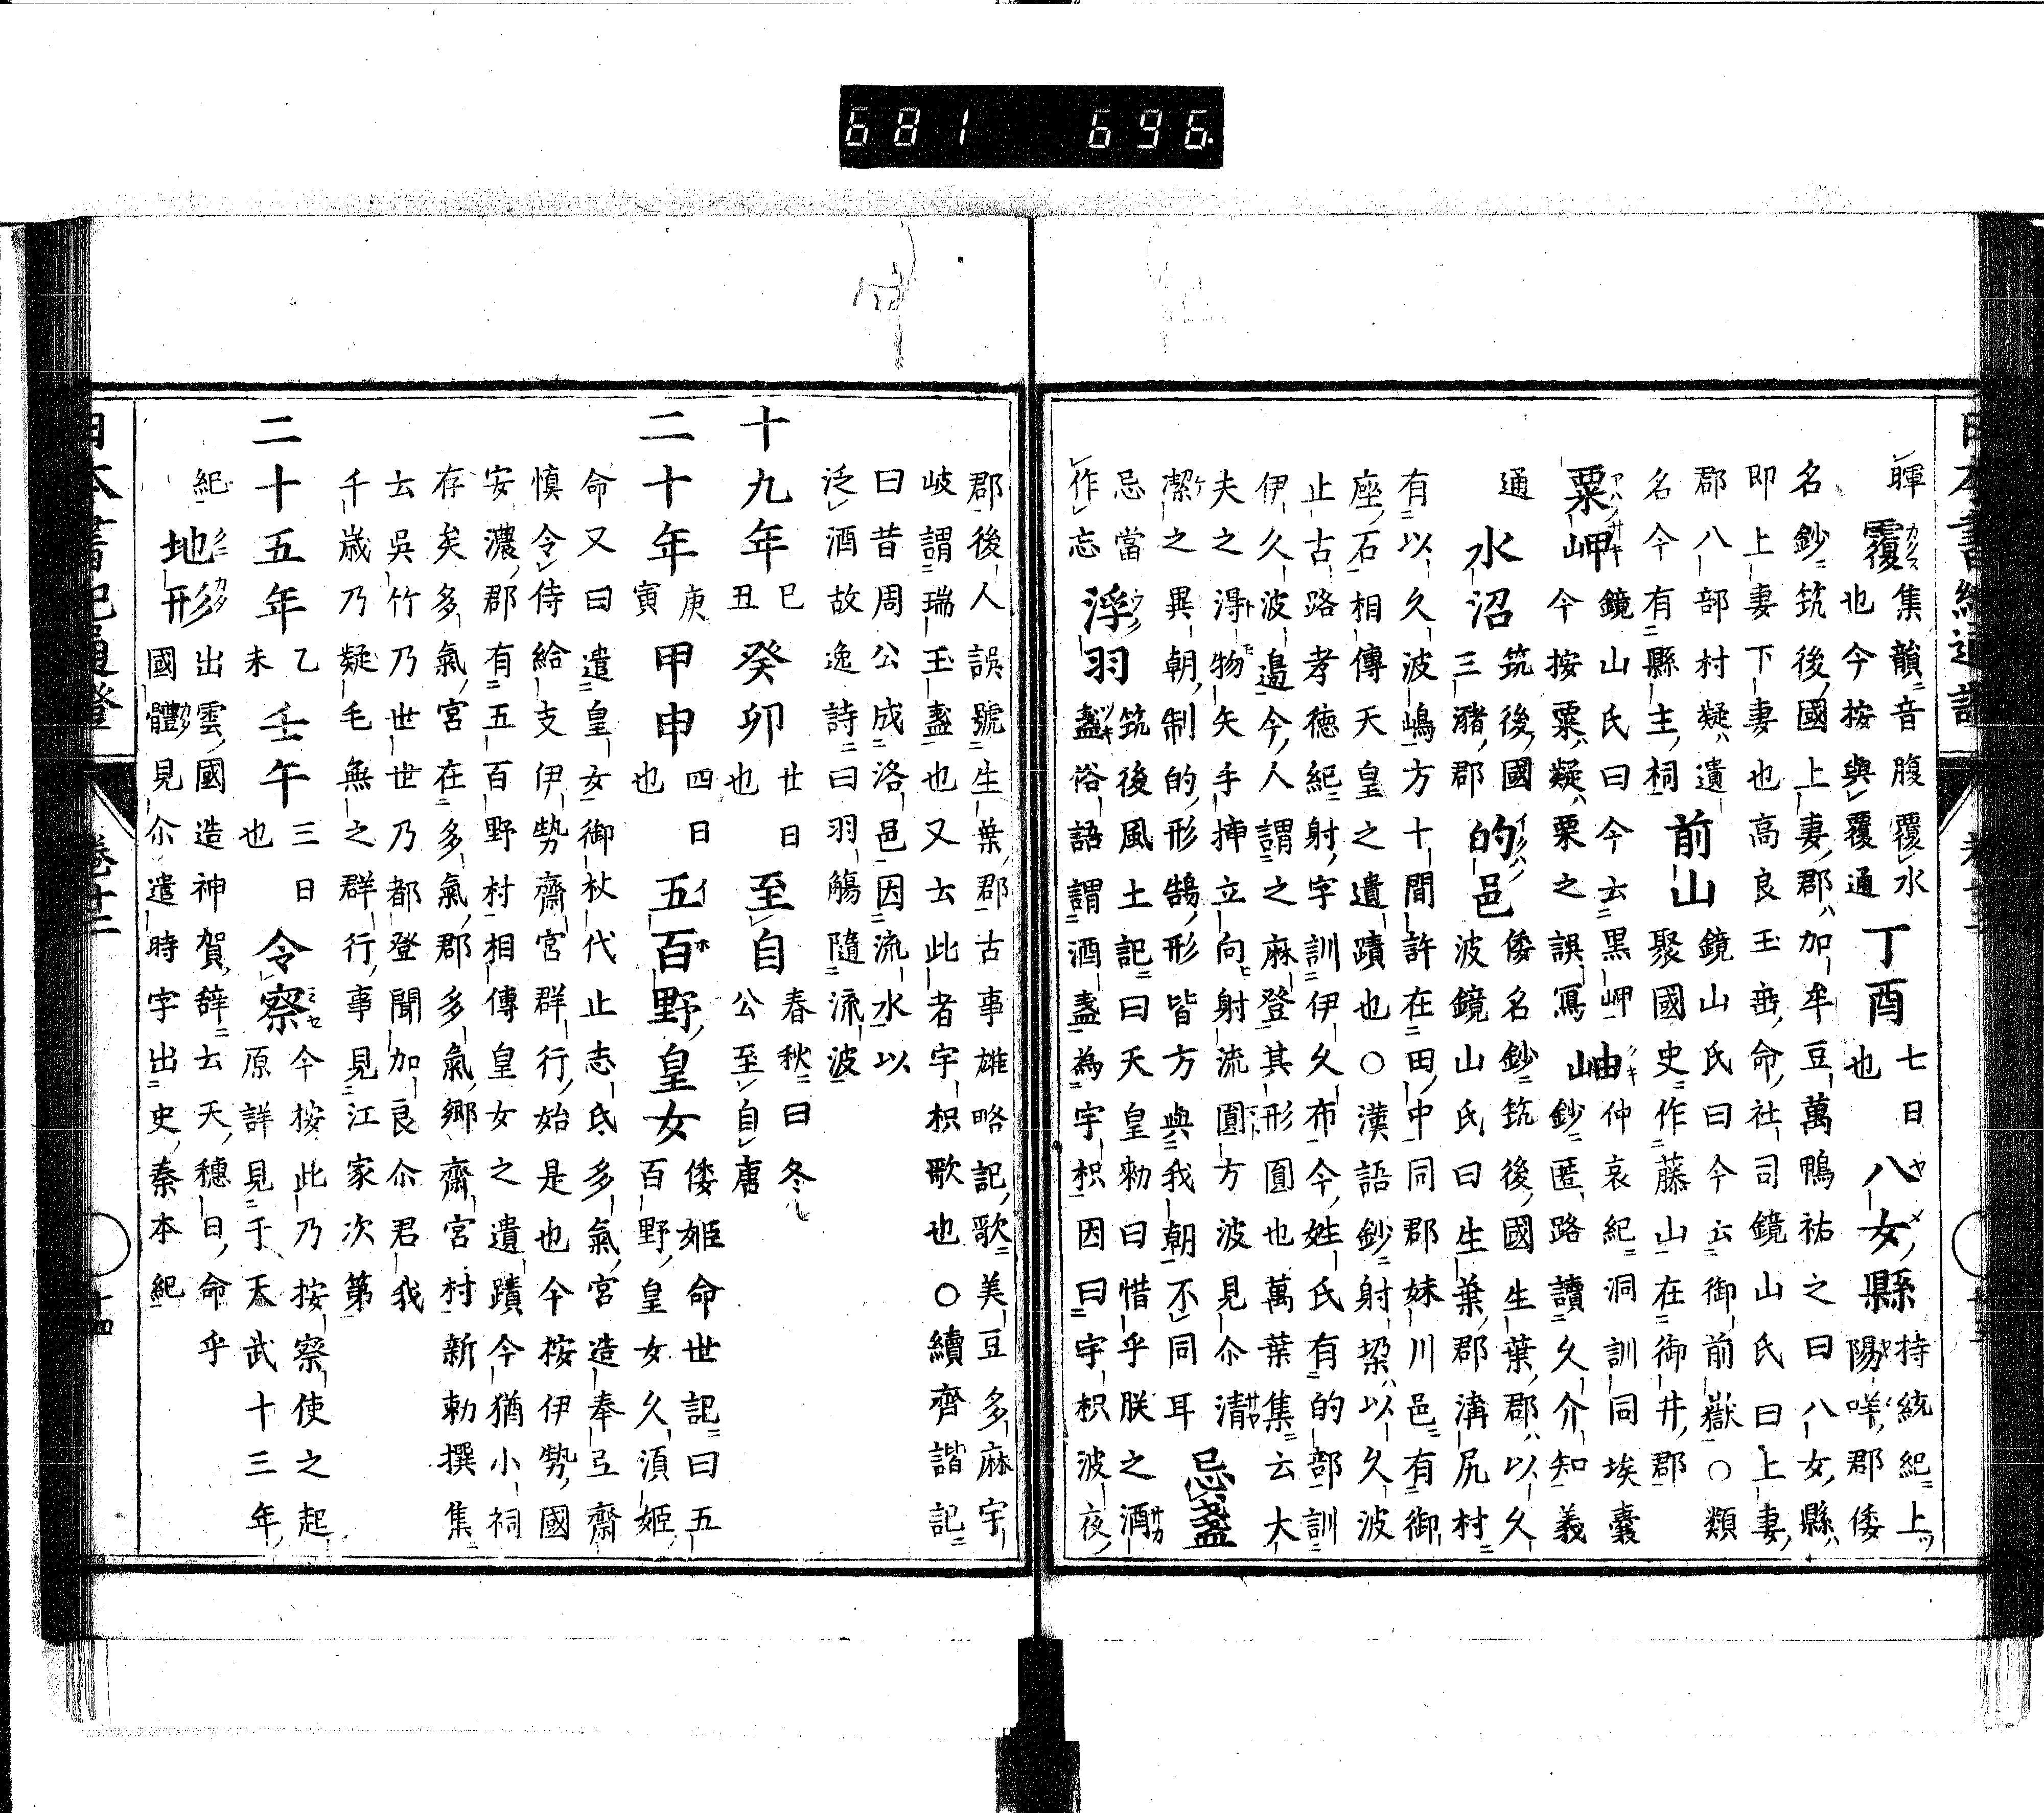 681 696
暉覆集韻音腹覆水也今按與覆通丁酉七日也八女縣持統紀上陽咩郡倭
名鈔筑後國上妻郡加牟豆萬鴨祐之曰八女縣
即上妻下妻也高良玉垂命社司鏡山氏曰上妻
郡八部村疑遺前山鏡山氏曰今云御前嶽○類聚國史作藤山在御井郡
名今有縣主祠
粟岬鏡山氏曰今云黒岬今按粟疑栗之誤寫岫仲哀紀洞訓同埃囊鈔匿路讀久介知義
通水沼筑後國三瀦郡的邑倭名鈔筑後國生葉郡以久波鏡山氏曰生葉郡溝尻村
有以久波嶋方十間許在田中同郡妹川邑有御
座石相傳天皇之遺蹟也○漢語鈔射垜以久波
止古路孝德紀射字訓伊久布今姓氏有的部訓
伊久波邉今人謂之麻登其形圓也萬葉集云大
夫之得物矢手挿立向射流圓方波見尒清
潔之異朝制的形鵠形皆方與我朝不同耳忌盞
忌當作忘浮羽筑後風土記曰天皇勑曰惜乎朕之酒盞俗語謂酒盞為宇枳因曰宇枳波夜
郡後人誤號生葉郡古事雄略記歌美豆多麻宇
岐謂瑞玉盞也又云此者宇枳歌也○續齊諧記
曰昔周公成洛邑因流水以
泛酒故逸詩曰羽觴隨流波
十九年巳丑癸卯廿日也至自春秋曰冬公至自唐
二十年庚寅甲申四日也五百野皇女倭姬命世記曰五百野皇女久須姬
命又曰遣皇女御杖代止志氐多氣宮造奉弖齋
愼令侍給支伊勢齋宮群行始是也今按伊勢國
安濃郡有五百野村相傳皇女之遺蹟今猶小祠
存矣多氣宮在多氣郡多氣鄉齋宮村新勅撰集
云吳竹乃世世乃都登聞加良尒君我
千歲乃疑毛無之群行事見江家次第
二十五年乙未壬午三日也令察今按此乃按察使之起原詳見于天武十三年
紀地形出雲國造神賀辭云天穗日命乎國體見尒遣時字出史秦本紀
日本書紀通證
卷十二